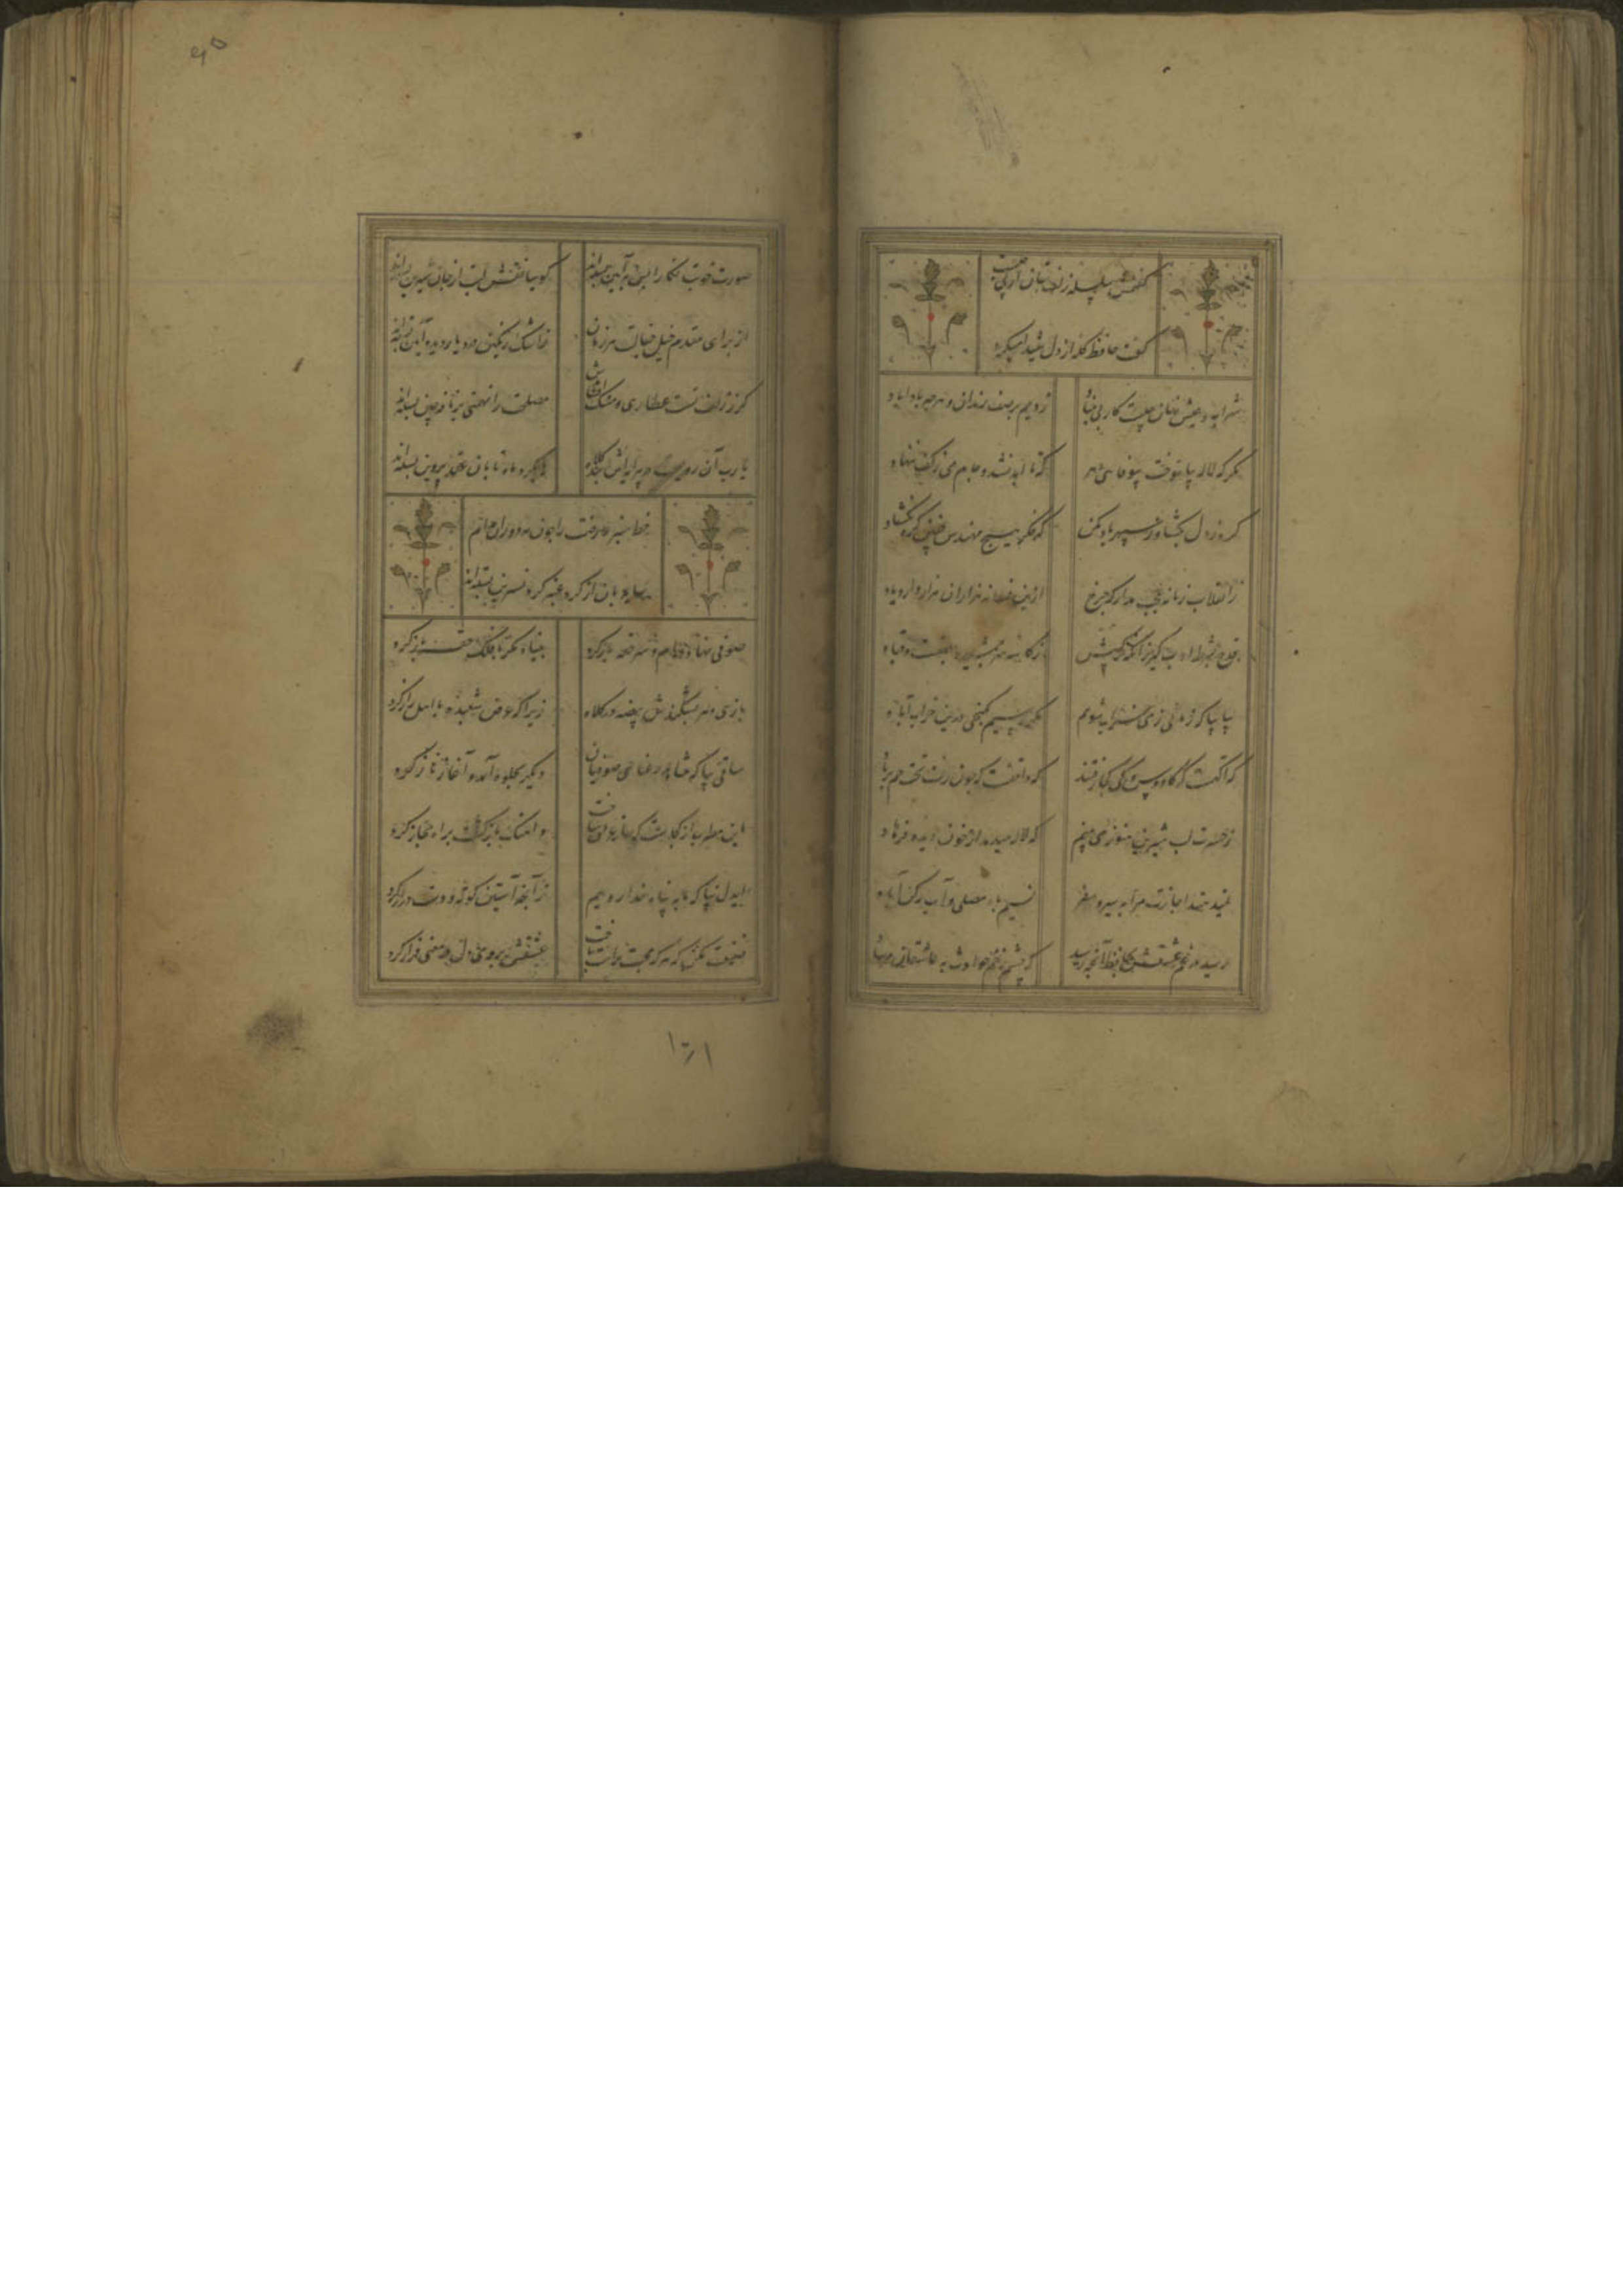 گفتمش سلسله زلف بتان از پی چیست
گفت حافظ گله از دل شیدا میکرد
شراب و عیش نهان چیست کار بی بنیاد
زدیم بر صف رندان و هر چه بادا باد
مگر که لاله بدانست بیوفائی دهر
که تا بزاد و بشد جام می ز کف ننهاد
گره ز دل بگشا وز سپهر یاد مکن
که فکر هیچ مهندس چنین گره نگشاد
ز انقلاب زمانه عجب مدار که چرخ
ازین فسانه هزاران هزار دارد یاد
قدح بشرط ادب گیر زانکه ترکیبش
ز کاسه سر جمشید و بهمنست و قباد
بیا بیا که زمانی ز می خراب شویم
مگر رسیم بگنجی درین خراب آباد
که آگهست که کاوس و کی کجا رفتند
که واقفست که چون رفت تخت جم بر باد
ز حسرت لب شیرین هنوز می بینم
که لاله میدمد از خون دیده فرهاد
نمیدهند اجازت مرا به سیر و سفر
نسیم باد مصلی و آب رکن آباد
رسید در غم عشقش بحافظ آنچه رسید
که چشم زخم حوادث به عاشقان مرساد
صورت خوبت نگارا خوش بآیین بسته‌اند
گوییا نقش لبت از جان شیرین بسته‌اند
از برای مقدم خیل خیالت مردمان
ز اشک رنگین در دیار دیده آیین بسته‌اند
کار زلف تست عطاری و مشک افشانی
مصلحت را تهمتی بر نافه چین بسته‌اند
یا رب آن رویست و در پیرامنش بند کلاه
یا بگرد ماه تابان عقد پروین بسته‌اند
خط سبز عارضت را چون مه دوران
سایه بان از گرد عنبر گرد نسرین بسته‌اند
صوفی نهاد دام و سر حقه باز کرد
بنیاد مکر با فلک حقه باز کرد
بازی دهر بشکندش بیضه در کلاه
زیرا که عرض شعبده با اهل راز کرد
ساقی بیا که شاهد رعنای صوفیان
دیگر بجلوه آمد و آغاز ناز کرد
این مطرب از کجاست که ساز عراق ساخت
و آهنگ بازگشت براه حجاز کرد
ای دل بیا که ما به پناه خدا رویم
زآنچه آستین کوته و دست دراز کرد
صنعت مکن که هر که محبت نه راست باخت
عشقش بروی دل در معنی فراز کرد
۱۶۱